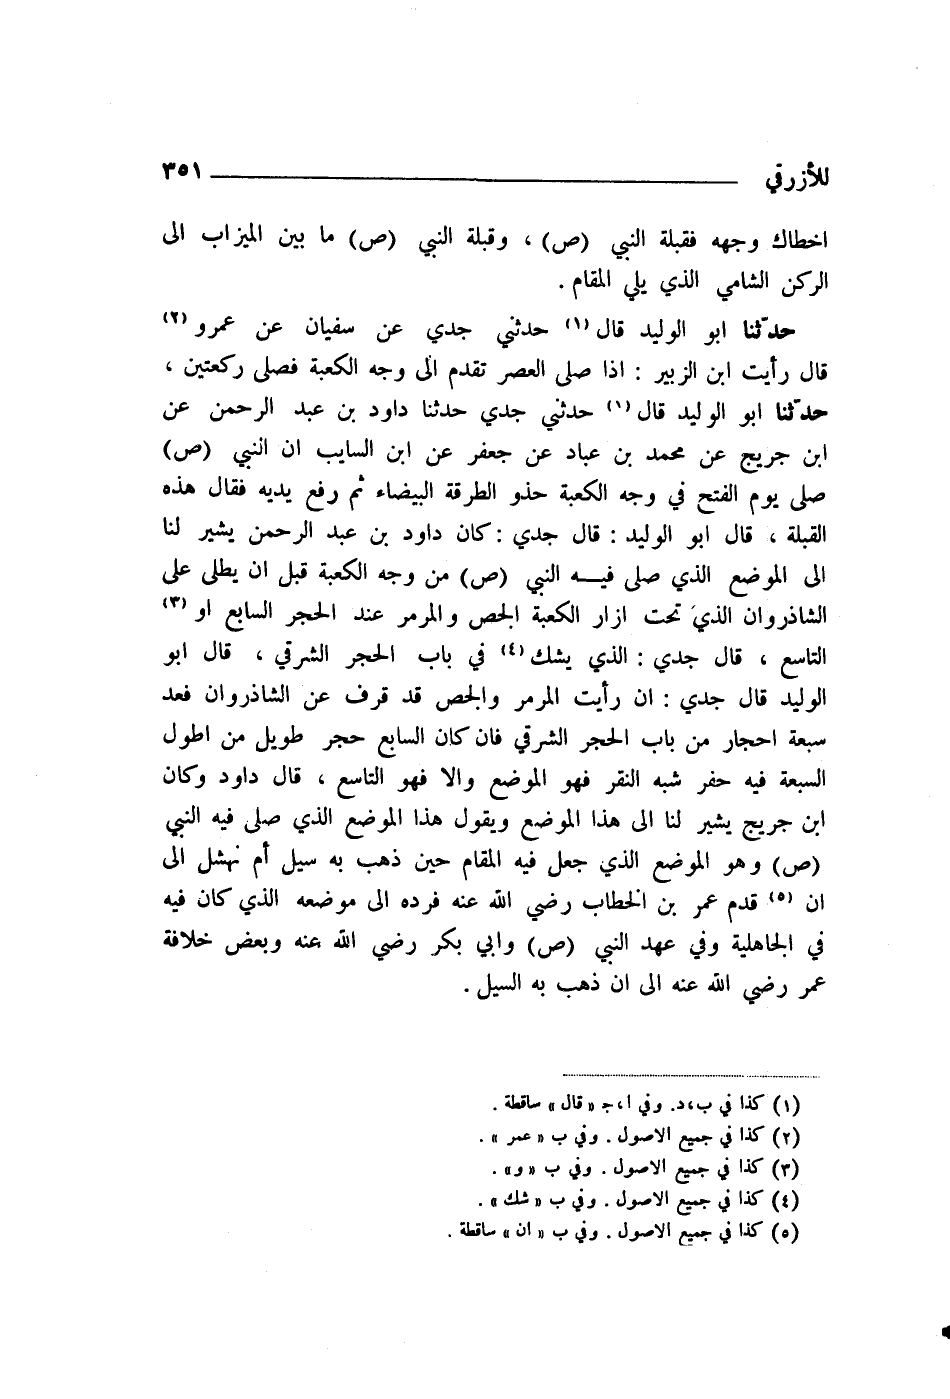 للأزرقي ٣٥١
اخطاك وجهه فقبلة النبي (ص) ، وقبلة النبي (ص) ما بين الميزاب الى
الركن الشامي الذي يلي المقام .
حدّثنا ابو الوليد قال (١) حدثني جدي عن سفيان عن عمرو (٢)
قال رأيت ابن الزبير : اذا صلى العصر تقدم الى وجه الكعبة فصلى ركعتين ،
حدّثنا ابو الوليد قال (١) حدثني جدي حدثنا داود بن عبد الرحمن عن
ابن جريج عن محمد بن عباد عن جعفر عن ابن السايب ان النبي (ص)
صلى يوم الفتح في وجه الكعبة حذو الطرقة البيضاء ثم رفع يديه فقال هذه
القبلة ، قال ابو الوليد : قال جدي : كان داود بن عبد الرحمن يشير لنا
الى الموضع الذي صلى فيـه النبي (ص) من وجه الكعبة قبل ان يطلى على
الشاذروان الذي تحت ازار الكعبة الجص والمرمر عند الحجر السابع او (٣)
التاسع ، قال جدي : الذي يشك (٤) في باب الحجر الشرقي ، قال ابو
الوليد قال جدي : ان رأيت المرمر والجص قد قرف عن الشاذروان فعد
سبعة احجار من باب الحجر الشرقي فان كان السابع حجر طويل من اطول
السبعة فيه حفر شبه النقر فهو الموضع والا فهو التاسع ، قال داود وكان
ابن جريج يشير لنا الى هذا الموضع ويقول هذا الموضع الذي صلى فيه النبي
(ص) وهو الموضع الذي جعل فيه المقام حين ذهب به سيل أم نهشل الى
ان (٥) قدم عمر بن الخطاب رضي الله عنه فرده الى موضعه الذي كان فيه
في الجاهلية وفي عهد النبي (ص) وابي بكر رضي الله عنه وبعض خلافة
عمر رضي الله عنه الى ان ذهب به السيل .
(١) كذا في ب،د. وفي ا،ج «قال» ساقطة .
(٢) كذا في جميع الاصول . وفي ب «عمر» .
(٣) كذا في جميع الاصول . وفي ب «و» .
(٤) كذا في جميع الاصول . وفي ب «شك» .
(٥) كذا في جميع الاصول . وفي ب «ان» ساقطة .